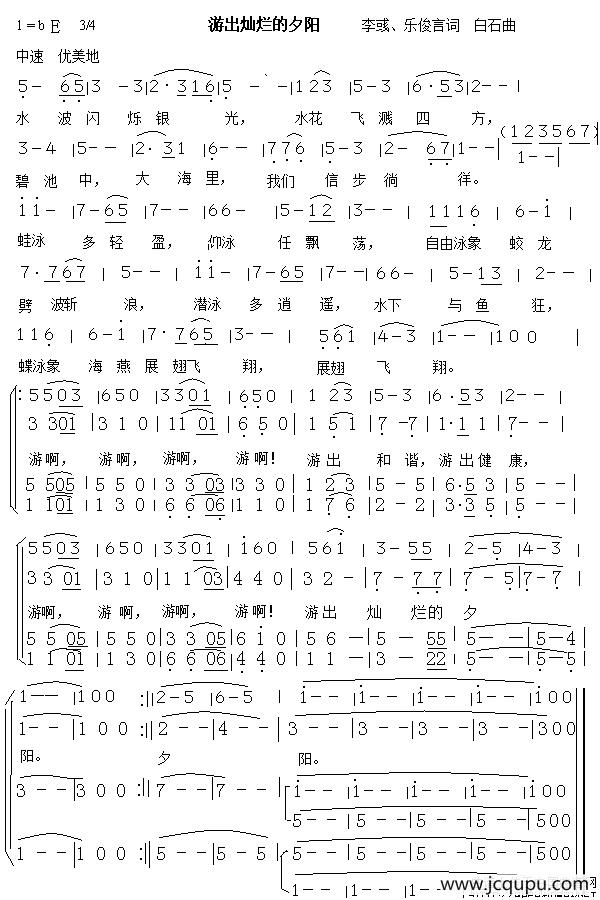 1=bE 3/4 游出灿烂的夕阳 李彧、乐俊言词 白石曲
中速 优美地
5- 65|3 -3|2·316|5 - -|123|5-3|6·53|2--|
水 波 闪 烁 银 光， 水花 飞 溅 四 方，
3-4|5--|2·31|6--|776|5-3|2- 67|1--|(123567)
1--|
碧 池 中， 大 海 里， 我们 信 步 徜 徉。
11-|7-65|7--|66-|5-12|3--|1116|6-i|
蛙泳 多 轻 盈， 仰泳 任 飘 荡， 自由泳象 蛟 龙
7·767|5--|ii-|7-65|7--|66-|5-13|2--|
劈 波斩 浪， 潜泳 多 逍 遥， 水下 与 鱼 狂，
116|6-i|7·765|3--|561|4-3|1--|100|
蝶泳象 海 燕 展 翅飞 翔， 展翅 飞 翔。
:5503|650|3301|650|1 23|5-3|6·53|2--|
3 301|310|1101|650|151|7-7|1·11|7--|
游啊， 游啊， 游啊， 游啊！ 游 出 和 谐，游 出 健 康，
5 505|550|3303|330|123|5--|6·53|5--|
1 101|130|6606|110|176|2-2|3·35|5--|
5503|650|3301|i60|56i|3-55|2-5|4-3|
3301|310|1103|440|32-|7-77|7-5|7-7|
游啊， 游 啊， 游啊， 游 啊！ 游 出 灿 烂 的 夕
5505|550|3305|6i0|55-|5-55|5--|5-4|
1101|130|6606|440|11-|3-22|5--|5-5|
1--|100:||2-5|6-5|i--|i--|i--|i--|i00
1--|100:||2--|4--|3--|3--|3--|3--|300
阳。 夕 阳。
3--|300:||7--|7--|i--|i--|i--|i--|i00
5--|5--|5--|5--|500
1--|100:||5--|5--|5--|5--|5--|5--|500
1--|1--|1--|1--|100
www.jcqupu.com